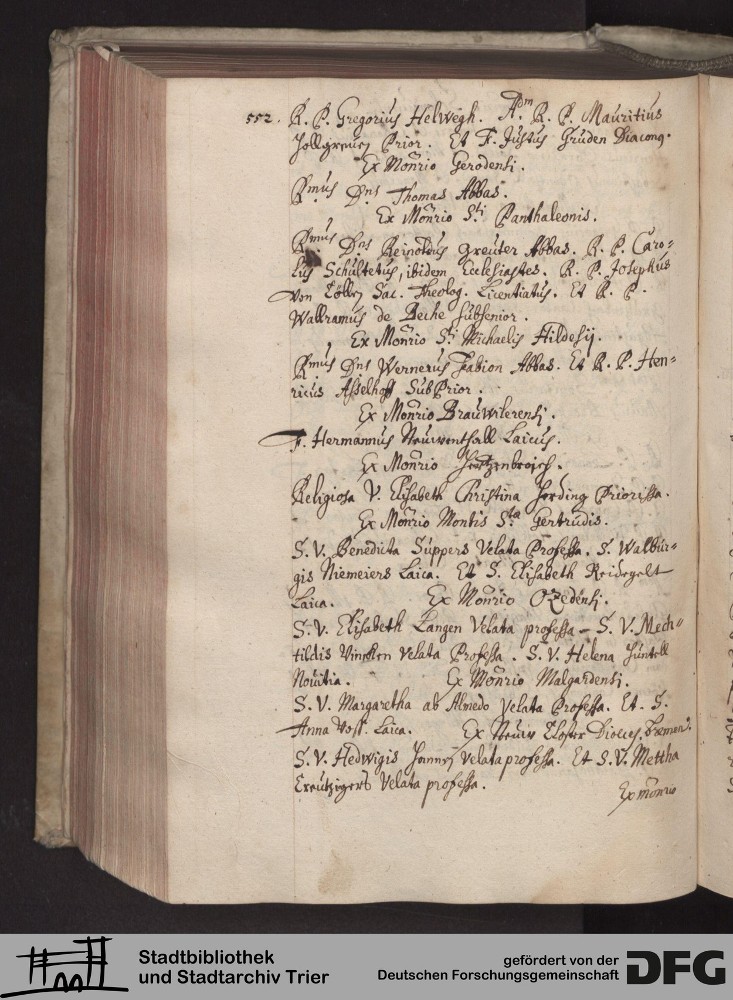 552. R. P. Gregorius Helwegh. Adm R. P. Mauritius
Prior. Et F. Justus Gruden Diaconq.
Ex Monrio Gerodensi.
Rmus Dns Thomas Abbas.
Ex Monrio Sti Panthaleonis.
Rmus Dns Reinoldus Greuter Abbas. R. P. Caro=
lus Schultetus, ibidem Ecclesiastes. R. P. Josephus
von Zöllen Sac. Theolog. Licentiatus. Et R. P.
Wallramus de Beche subsenior.
Ex Monrio Sti Michaelis Hildesij.
Rmus Dns Wernerus Fabion Abbas. Et R. P. Hen=
ricus Asselhoff SubPrior.
Ex Monrio Brauwilerensi.
F. Hermannus Neuwenthall Laicus.
Ex Monrio Hertzenbroich.
Religiosa V. Elisabeth Christina Hording Priorissa.
Ex Monrio Montis Stæ Gertrudis.
S. V. Benedicta Suppers Velata Professa. S. Walbur=
gis Niemeiers Laica. Et S. Elisabeth Reidegelt
Laica. Ex Monrio Ozedensi.
S. V. Elisabeth Langen Velata professa – S. V. Mech=
tildis Vincken Velata Professa. S. V. Helena Huntell
Novitia. Ex Monrio Malgardensi.
S. V. Margaretha ab Almedo Velata Professa. Et. S.
Anna Voss. Laica. Ex Neuw Closter Dioces. Bremen.
S. V. Hedwigis Velata professa. Et S. V. Mettha
Creutzigers Velata professa.
Ex monrio
Stadtbibliothek
und Stadtarchiv Trier
gefördert von der
Deutschen Forschungsgemeinschaft
DFG